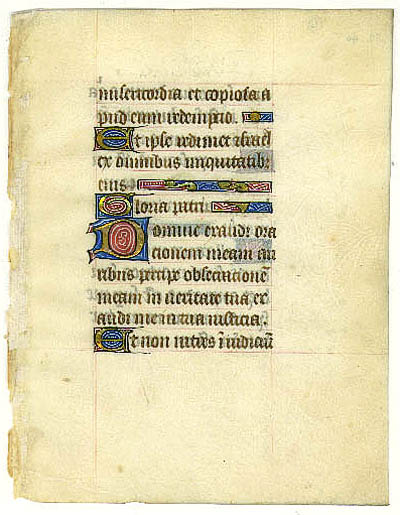 misericordia et copiosa a
pud eum redemptio.
Et ipse redimet israel
ex omnibus iniquitatibꝫ
eius
Gloria patri
Domine exaudi ora
cionem meam au
ribus percipe obsecrationē
meam in veritate tua ex
audi me in tua iusticia.
Et non intres ī iudiciū